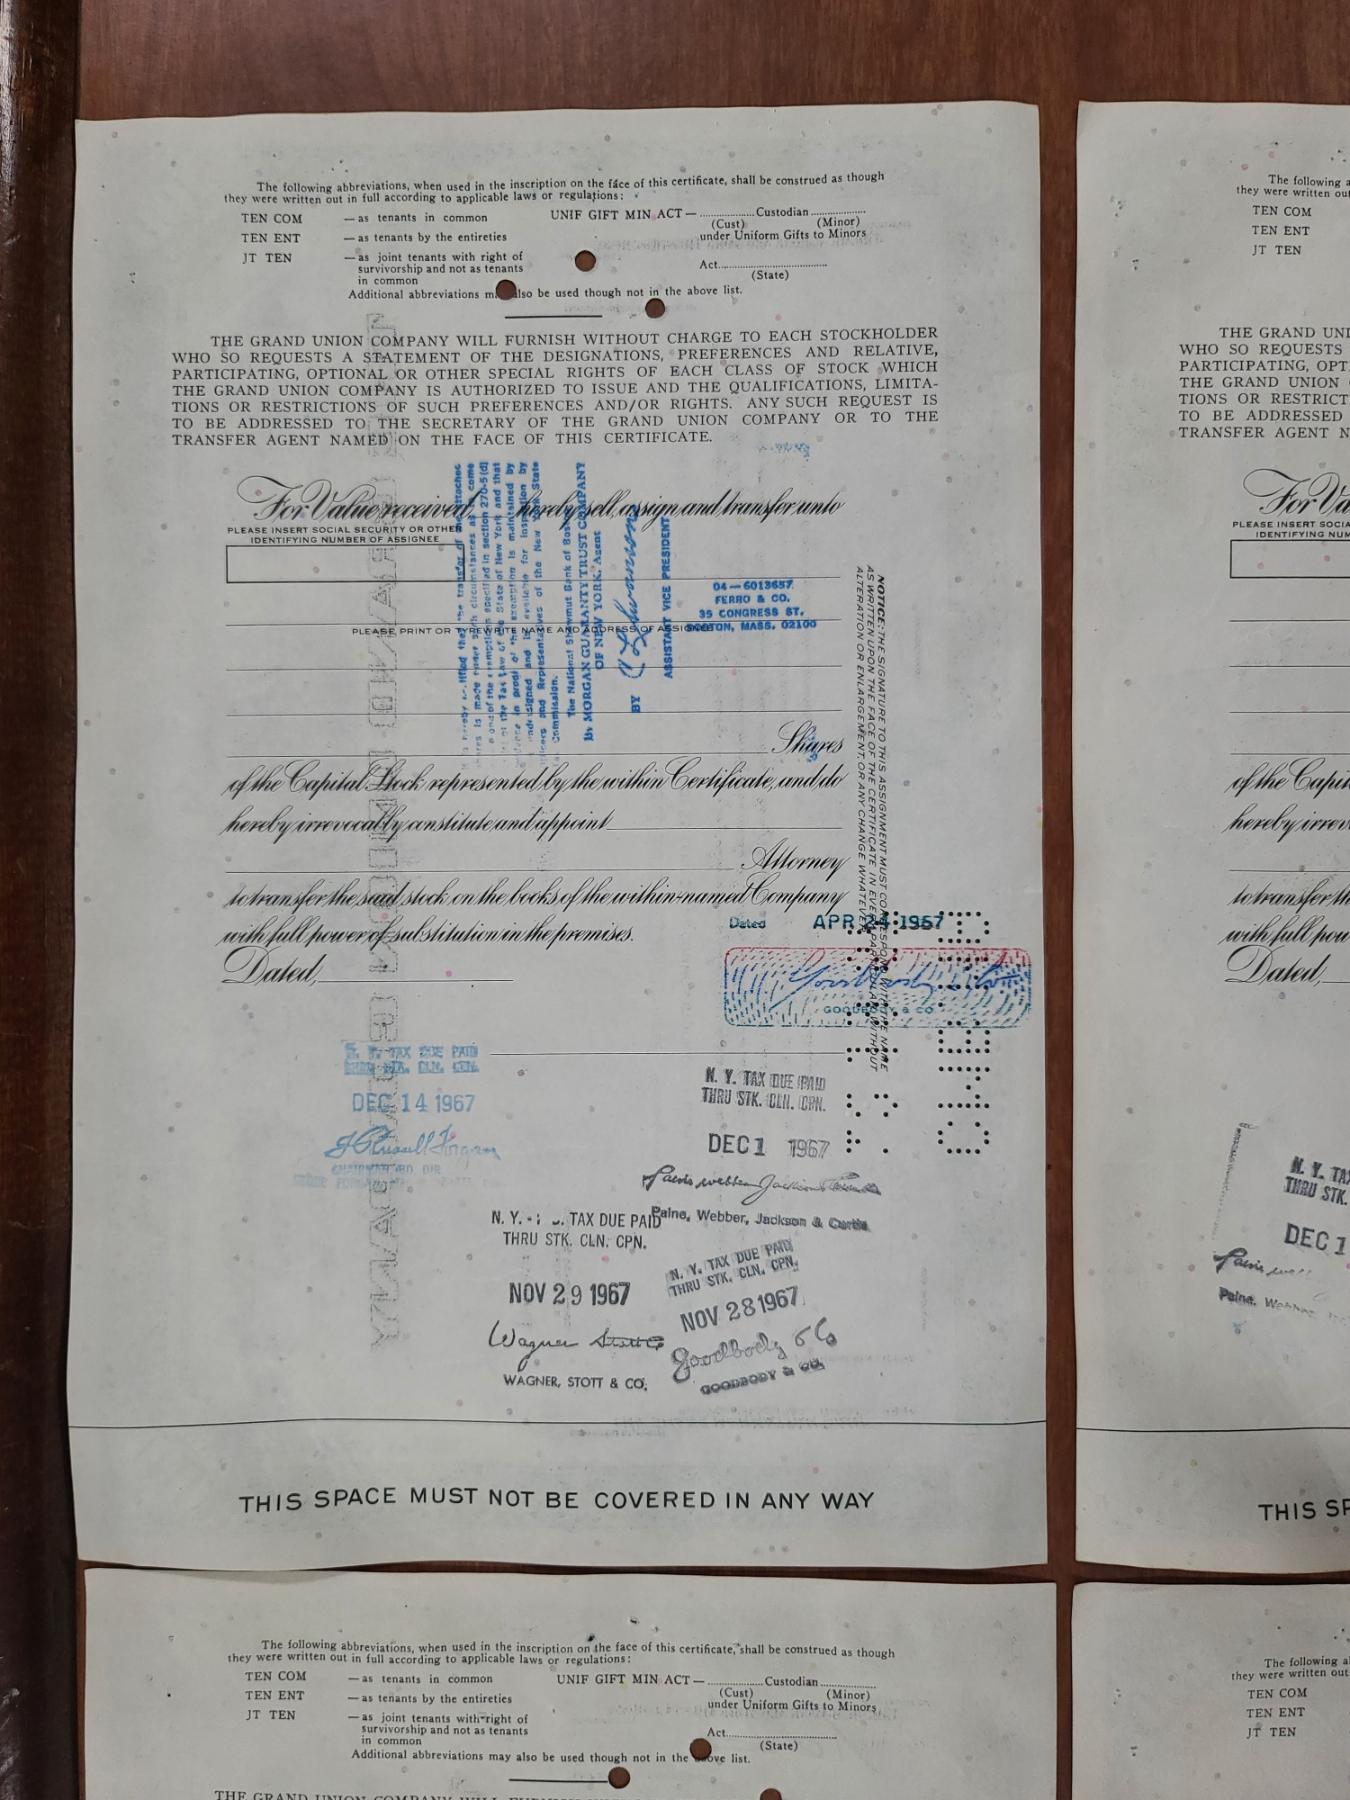 The following abbreviations, when used in the inscription on the face of this certificate, shall be construed as though
they were written out in full according to applicable laws or regulations:
TEN COM — as tenants in common UNIF GIFT MIN ACT — Custodian
(Cust) (Minor)
TEN ENT — as tenants by the entireties under Uniform Gifts to Minors
JT TEN — as joint tenants with right of
survivorship and not as tenants
in common
Act
(State)
Additional abbreviations also be used though not in the above list.
THE GRAND UNION COMPANY WILL FURNISH WITHOUT CHARGE TO EACH STOCKHOLDER
WHO SO REQUESTS A STATEMENT OF THE DESIGNATIONS, PREFERENCES AND RELATIVE,
PARTICIPATING, OPTIONAL OR OTHER SPECIAL RIGHTS OF EACH CLASS OF STOCK WHICH
THE GRAND UNION COMPANY IS AUTHORIZED TO ISSUE AND THE QUALIFICATIONS, LIMITA-
TIONS OR RESTRICTIONS OF SUCH PREFERENCES AND/OR RIGHTS. ANY SUCH REQUEST IS
TO BE ADDRESSED TO THE SECRETARY OF THE GRAND UNION COMPANY OR TO THE
TRANSFER AGENT NAMED ON THE FACE OF THIS CERTIFICATE.
For Value received hereby sell, assign and transfer unto
PLEASE INSERT SOCIAL SECURITY OR OTHER
IDENTIFYING NUMBER OF ASSIGNEE
The National Shawmut Bank of
By MORGAN GUARANTY TRUST COMPANY
OF NEW YORK, Agent
BY
ASSISTANT VICE PRESIDENT
04—6013657
FERRO & CO.
35 CONGRESS ST.
BOSTON, MASS. 02100
PLEASE PRINT OR TYPEWRITE NAME AND ADDRESS OF ASSIGNEE
Shares
of the Capital Stock represented by the within Certificate, and do
hereby irrevocably constitute and appoint
Attorney
to transfer the said stock on the books of the within-named Company
with full power of substitution in the premises.
Dated,
NOTICE: THE SIGNATURE TO THIS ASSIGNMENT MUST CORRESPOND WITH THE NAME
AS WRITTEN UPON THE FACE OF THE CERTIFICATE IN EVERY PARTICULAR WITHOUT
ALTERATION OR ENLARGEMENT, OR ANY CHANGE WHATEVER
Dated APR 24 1967
GOODBODY & CO
N. Y. TAX DUE PAID
THRU STK. CLN. CPN.
DEC 14 1967
N. Y. TAX DUE PAID
THRU STK. CLN. CPN.
DEC 1 1967
Paine, Webber, Jackson & Curtis
N. Y. TAX DUE PAID
THRU STK. CLN. CPN.
NOV 29 1967
Wagner Stott & Co
WAGNER, STOTT & CO.
N. Y. TAX DUE PAID
THRU STK. CLN. CPN.
NOV 28 1967
Goodbody & Co
GOODBODY & CO.
THIS SPACE MUST NOT BE COVERED IN ANY WAY
The following
they were written out
TEN COM
TEN ENT
JT TEN
THE GRAND
WHO SO REQUESTS
PARTICIPATING,
THE GRAND UNION
TIONS OR
TO BE ADDRESSED
TRANSFER AGENT
For
PLEASE INSERT
IDENTIFYING
of the
hereby
to transfer
with full
Dated,
N. Y.
THRU STK.
DEC 1
Paine,
THIS
The following abbreviations, when used in the inscription on the face of this certificate, shall be construed as though
they were written out in full according to applicable laws or regulations:
TEN COM — as tenants in common UNIF GIFT MIN ACT — Custodian
(Cust) (Minor)
TEN ENT — as tenants by the entireties under Uniform Gifts to Minors
JT TEN — as joint tenants with right of
survivorship and not as tenants
in common
Act
(State)
Additional abbreviations may also be used though not in the above list.
The following
they were written
TEN COM
TEN ENT
JT TEN